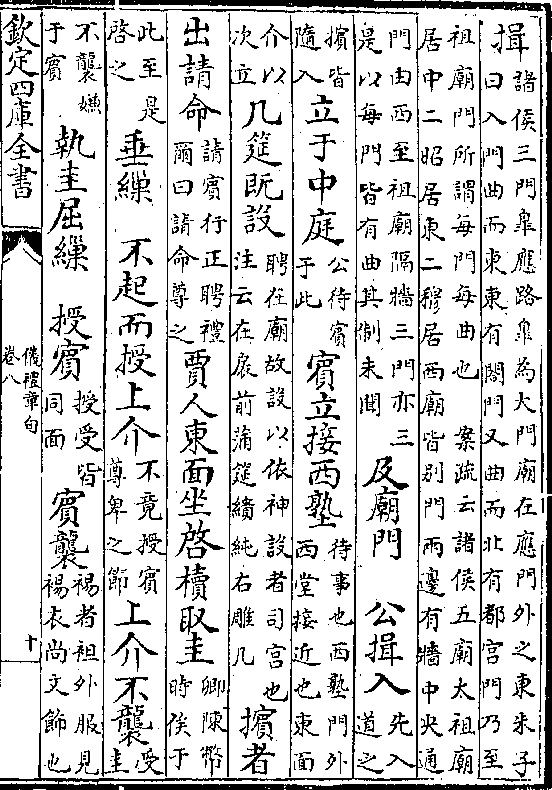 揖諸侯三門臯應路臯為大門廟在應門外之東朱子曰入門曲而東東有閤門又曲而北有都宮門乃至
祖廟門所謂每門每曲也 案疏云諸侯五廟太祖廟居中二昭居東二穆居西廟皆别門兩邊有牆中央通
門由西至祖廟隔牆三門亦三是以每門皆有曲其制未聞 及廟門 公揖入先入道之
擯皆隨入 立于中庭公待賓于此 賓立接西塾待事也西塾門外西堂接近也東面
介以次立 几筵既設聘在廟故設以依神設者司宮也注云在扆前蒲筵繢純右雕几 擯者
出請命請賓行正聘禮爾曰請命尊之 賈人東面坐啓櫝取圭卿陳幣時俟于
此至是啓之 垂繅 不起而授上介不竟授賓尊卑之節 上介不襲受圭
不襲嫌于賓 執圭屈繅 授賓授受皆同面 賓襲裼者袒外服見裼衣尚文飾也
欽定四庫全書
儀禮章句
卷八
十